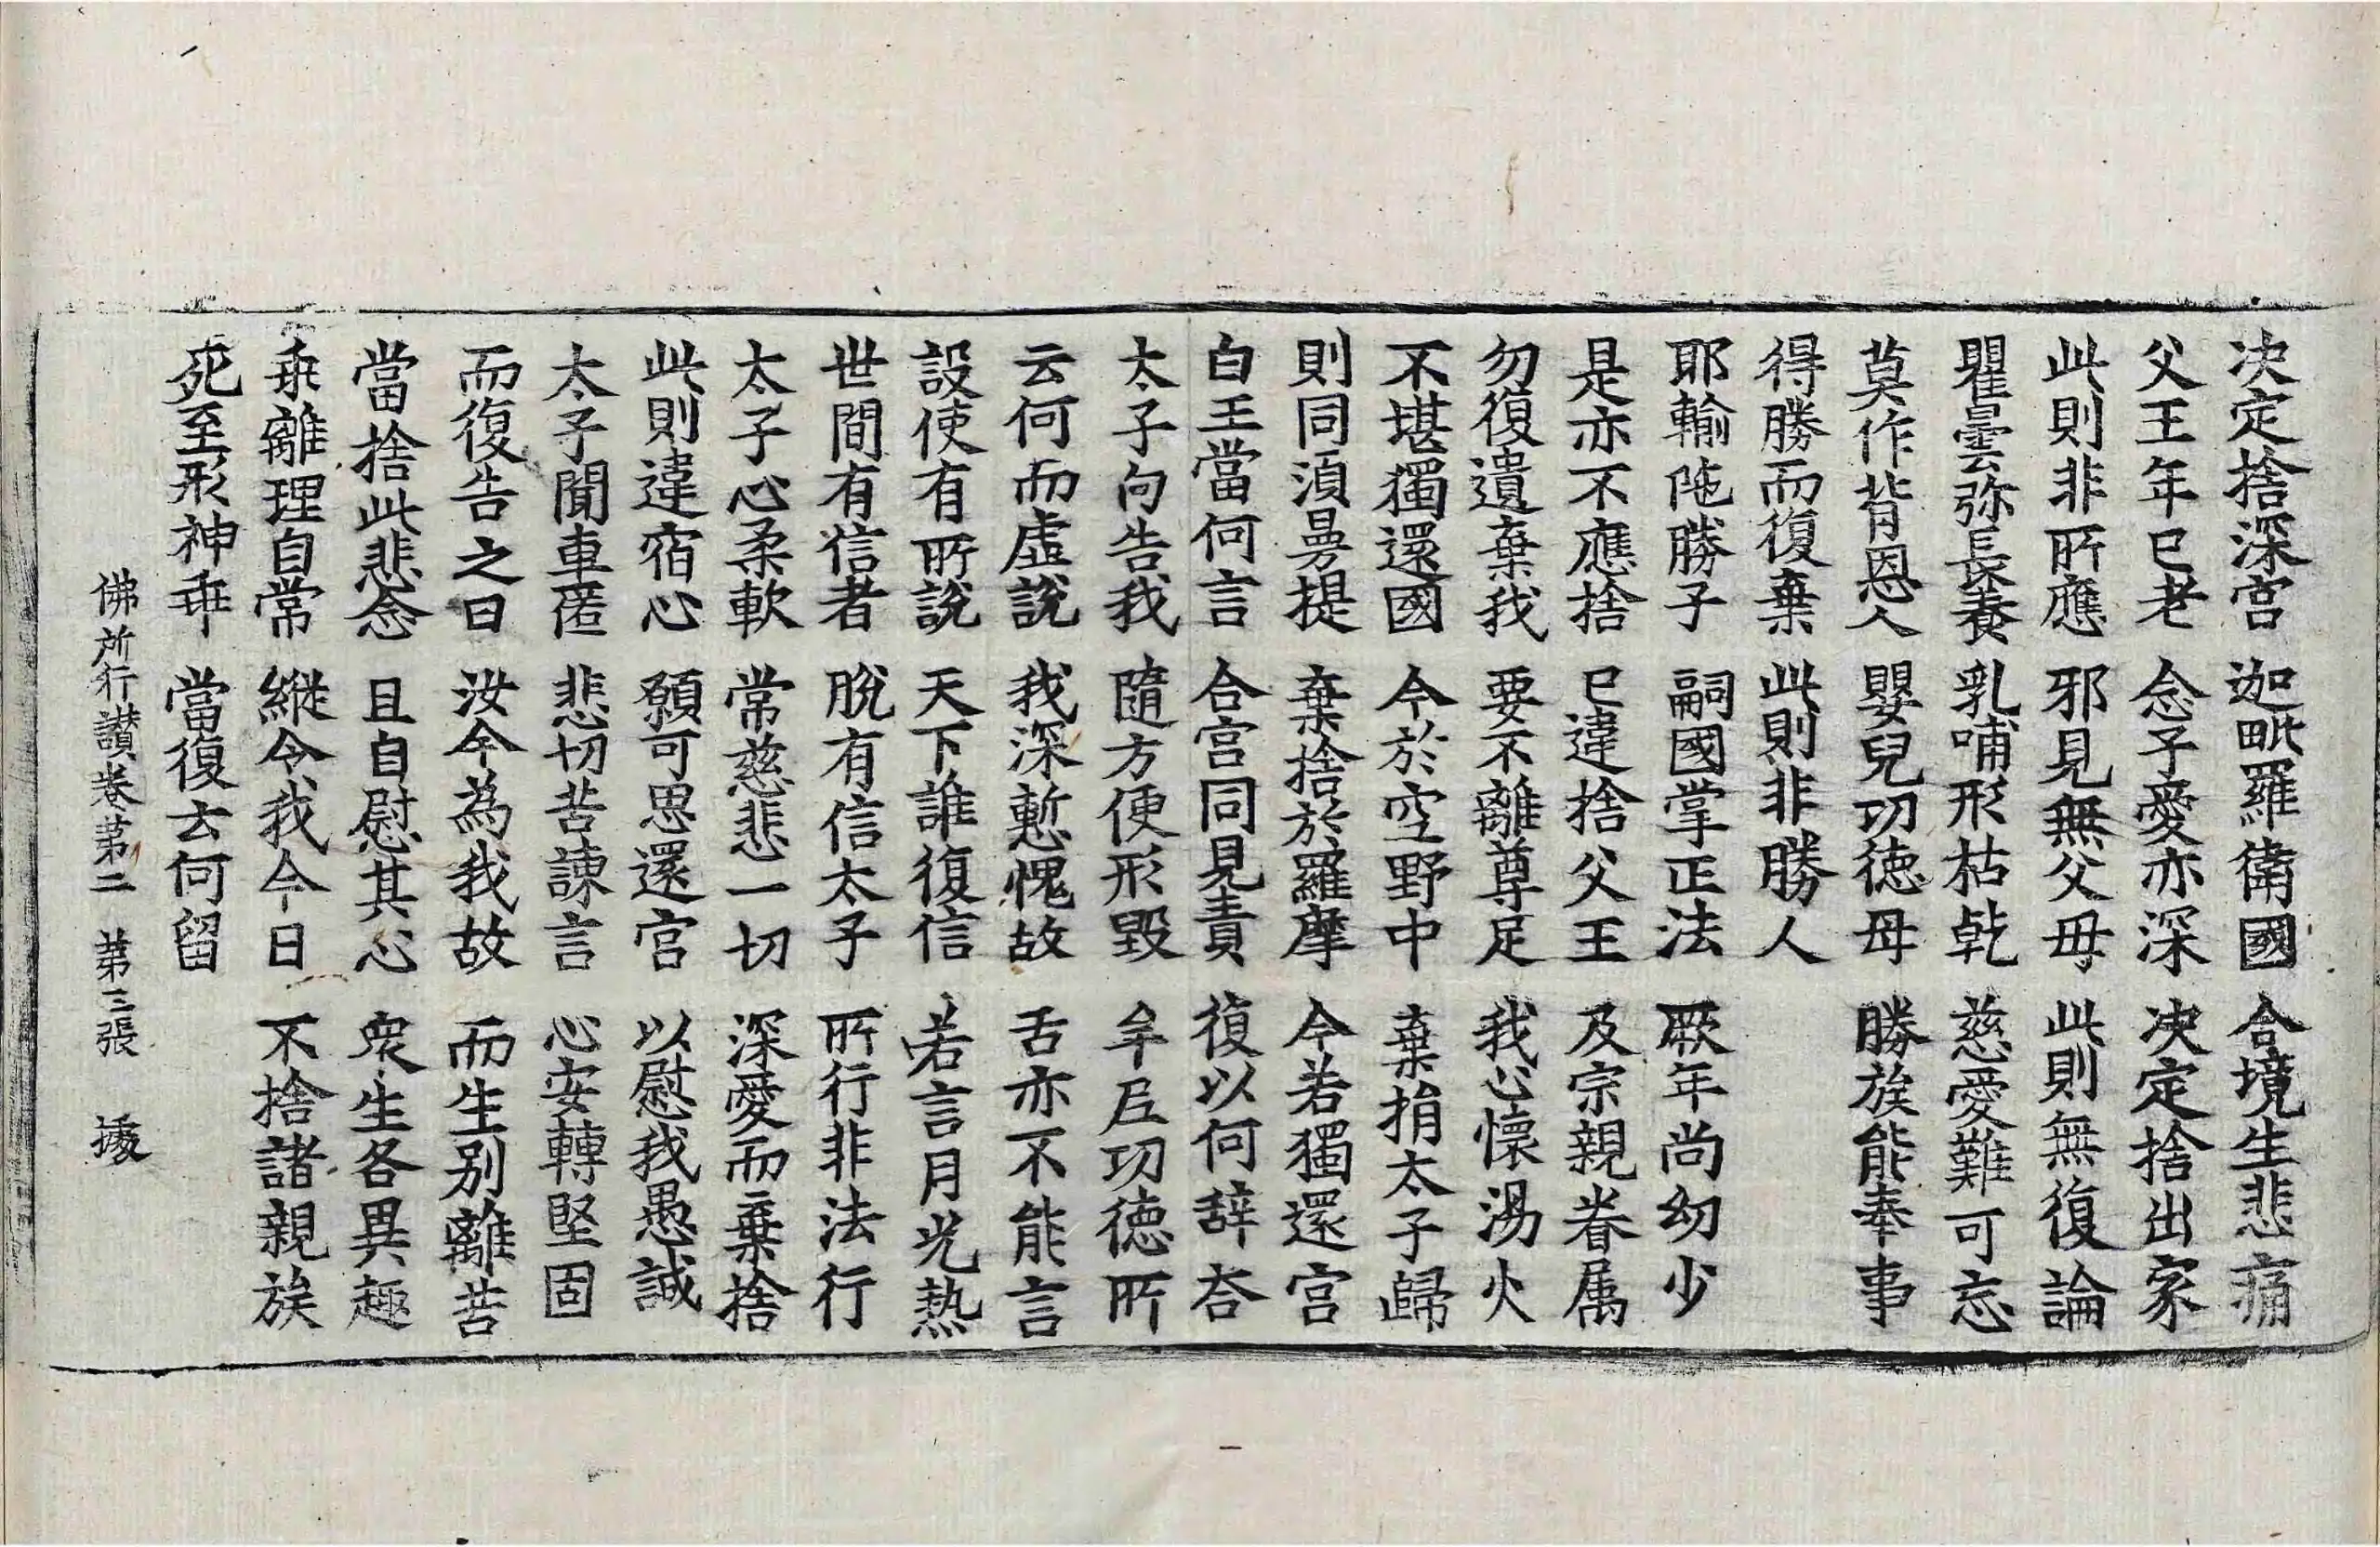 决定捨深宮 迦毗羅衛國 合境生悲痛
父王年已老 念子愛亦深 决定捨出家
此則非所應 邪見無父母 此則無復論
瞿曇弥長養 乳哺形枯乾 慈愛難可忘
莫作背恩人 嬰兒功徳母 勝族能奉事
得勝而復棄 此則非勝人
耶輸陁勝子 嗣國掌正法 厥年尚幼少
是亦不應捨 已違捨父王 及宗親眷属
勿復遺棄我 要不離尊足 我心懷湯火
不堪獨還國 今於空野中 棄捐太子歸
則同湏曼提 棄捨於羅摩 今若獨還宮
白王當何言 合宮同見責 復以何辞荅
太子向告我 隨方便形毀 牟𡰱功徳所
云何而虛說 我深慙愧故 舌亦不能言
設使有所說 天下誰復信 若言月光熱
世間有信者 脫有信太子 所行行非法行
太子心柔軟 常慈悲一切 深愛而棄捨
此則違宿心 願可思還宮 以慰我愚誠
太子聞車匿 悲切苦諫言 心安轉堅固
而復告之曰 汝今為我故 而生別離苦
當捨此悲念 且自慰其心 衆生各異趣
乖離理自常 縱令我今日 不捨諸親族
死至形神乖 當復去何留
佛所行讃卷苐二 苐三張 㨿